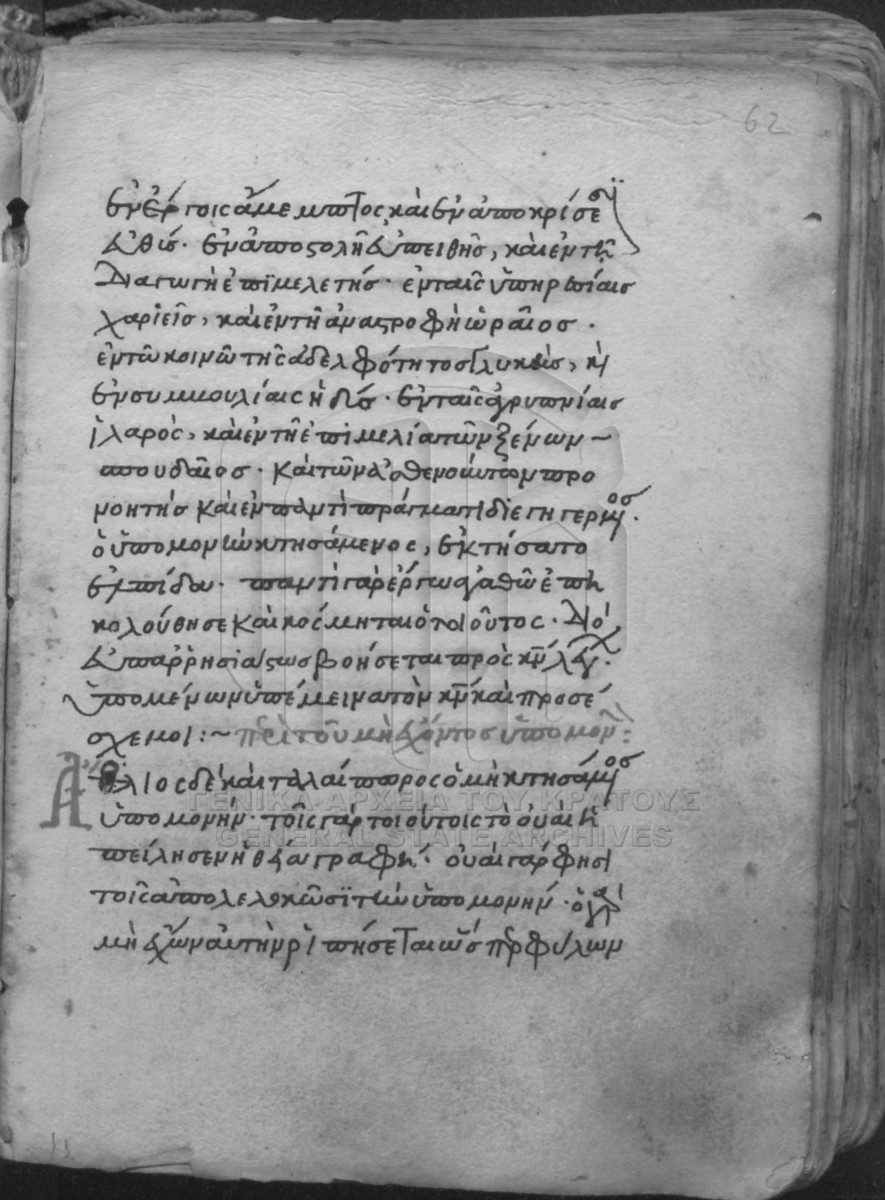 62
ἐν ἔργοις ἄμεμπτος, καὶ ἐν ἀποκρίσεσϊ
εὐθύς· ἐν ἀποστολῇ εὐπειθὴς, καὶ ἐν τῇ
διαγωγῇ ἐπϊμελετής· ἐν ταῖς ὑπηρεσίαις
χαρίεις, καὶ ἐν τῇ ἀναστροφῇ ὡραῖος·
ἐν τῶ κοινῶ τῆς ἀδελφότητος γλυκεὶς, κὶ
ἐν συμβουλίαις ἡδύς· ἐν ταῖς ἀγρυπνίαις
ἱλαρὸς, καὶ ἐν τῇ ἐπιμελία τῶν ξένων ~
σπουδαῖος· καὶ τῶν ἀσθενούντων προ
νοητής καὶ ἐν παντὶ πράγματι διεγηγερμένος·
ὁ ὑπομονὴν κτησάμενος, ἐκτήσατο
ἐλπίδαν· παντὶ γὰρ ἔργω ἀγαθῶ ἐπη
κολούθησε καὶ κοσμῆται ὁ τοιοῦτος· διὸ
ἐν παρρησία οὕτως βοήσεται πρὸς κν λέγων·
ὑπομένων ὑπέμεινα τὸν κν καὶ προσέ
σχε μοι:~ περὶ τοῦ μὴ ἔχοντος ὑπομονὴν:
Ἄθλιος δὲ καὶ ταλαίπωρος ὁ μὴ κτησάμενος
ὑπομονήν· τοῖς γὰρ τοιούτοις τὸ οὐαὶ ἡ
πείλησεν ἡ θεία γραφή· οὐαὶ γάρ φησι
τοῖς ἀπολελοκῶσϊ τὴν ὑπομονήν· ὁ γὰρ
μὴ ἔχων αὐτὴν ῥιπήσεται ὥσπερ φύλων
ΓΕΝΙΚΑ ΑΡΧΕΙΑ ΤΟΥ ΚΡΑΤΟΥΣ
GENERAL STATE ARCHIVES